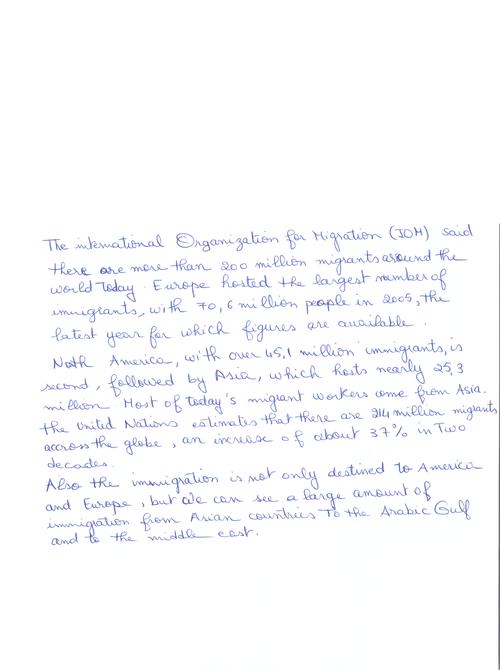 The international Organization for Migration (IOM) said
there are more than 200 million migrants around the
world today. Europe hosted the largest number of
immigrants, with 70,6 million people in 2005, the
latest year for which figures are available.
North America, with over 45,1 million immigrants, is
second, followed by Asia, which hosts nearly 25,3
million. Most of today's migrant workers come from Asia.
the United Nations estimates that there are 214 million migrants
accross the globe, an increase of about 37% in Two
decades.
Also the immigration is not only destined to America
and Europe, but we can see a large amount of
immigration from Asian countries To the Arabic Gulf
and to the middle east.